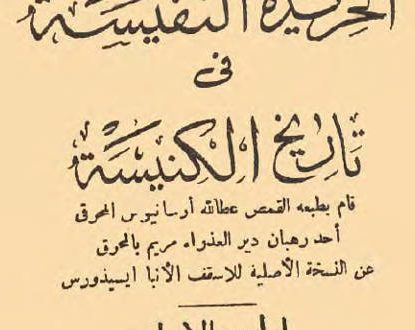 الخريدة النفيسة
فى
تاريخ الكنيسة
قام بطبعه القمص عطالله أرسانيوس المحرقى
أحد رهبان دير العذراء مريم بالمحرق
عن النسخة الأصلية للاسقف الأنبا ايسيذورس